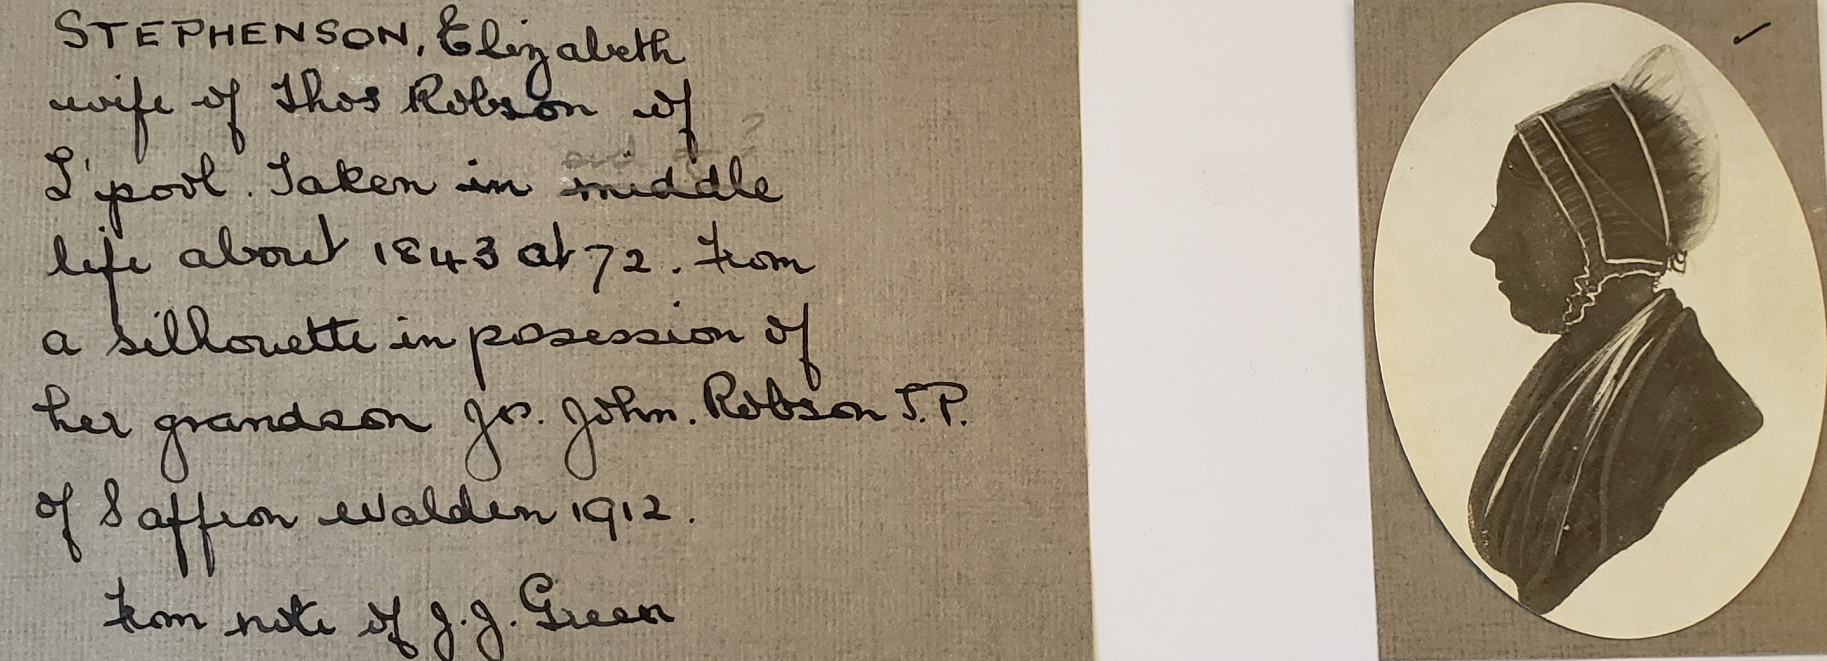 STEPHENSON, Elizabeth
wife of Thos Robson of
L'pool. Taken in middle
life about 1843 at 72. From
a silhouette in posession of
her grandson Jos. John. Robson J.P.
of Saffron Walden 1912.
From note of J.J. Green